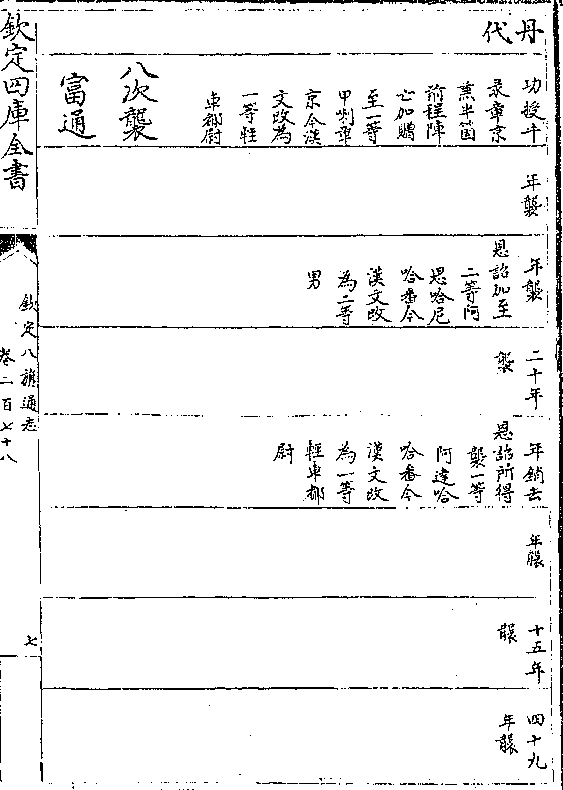 丹代
功授牛
彔章京
兼半箇
前程陣
亡加贈
至一等
甲喇章
京今漢
文改為
一等輕
車都尉
八次襲
富通
年襲
年襲
恩詔加至
二等阿
思哈尼
哈番今
漢文改
為二等
男
二十年
襲
年銷去
恩詔所得
襲一等
阿達哈
哈番今
漢文改
為一等
輕車都
尉
年襲
十五年
襲
四十九
年襲
欽定四庫全書
欽定八旗通志
卷二百七十八
七